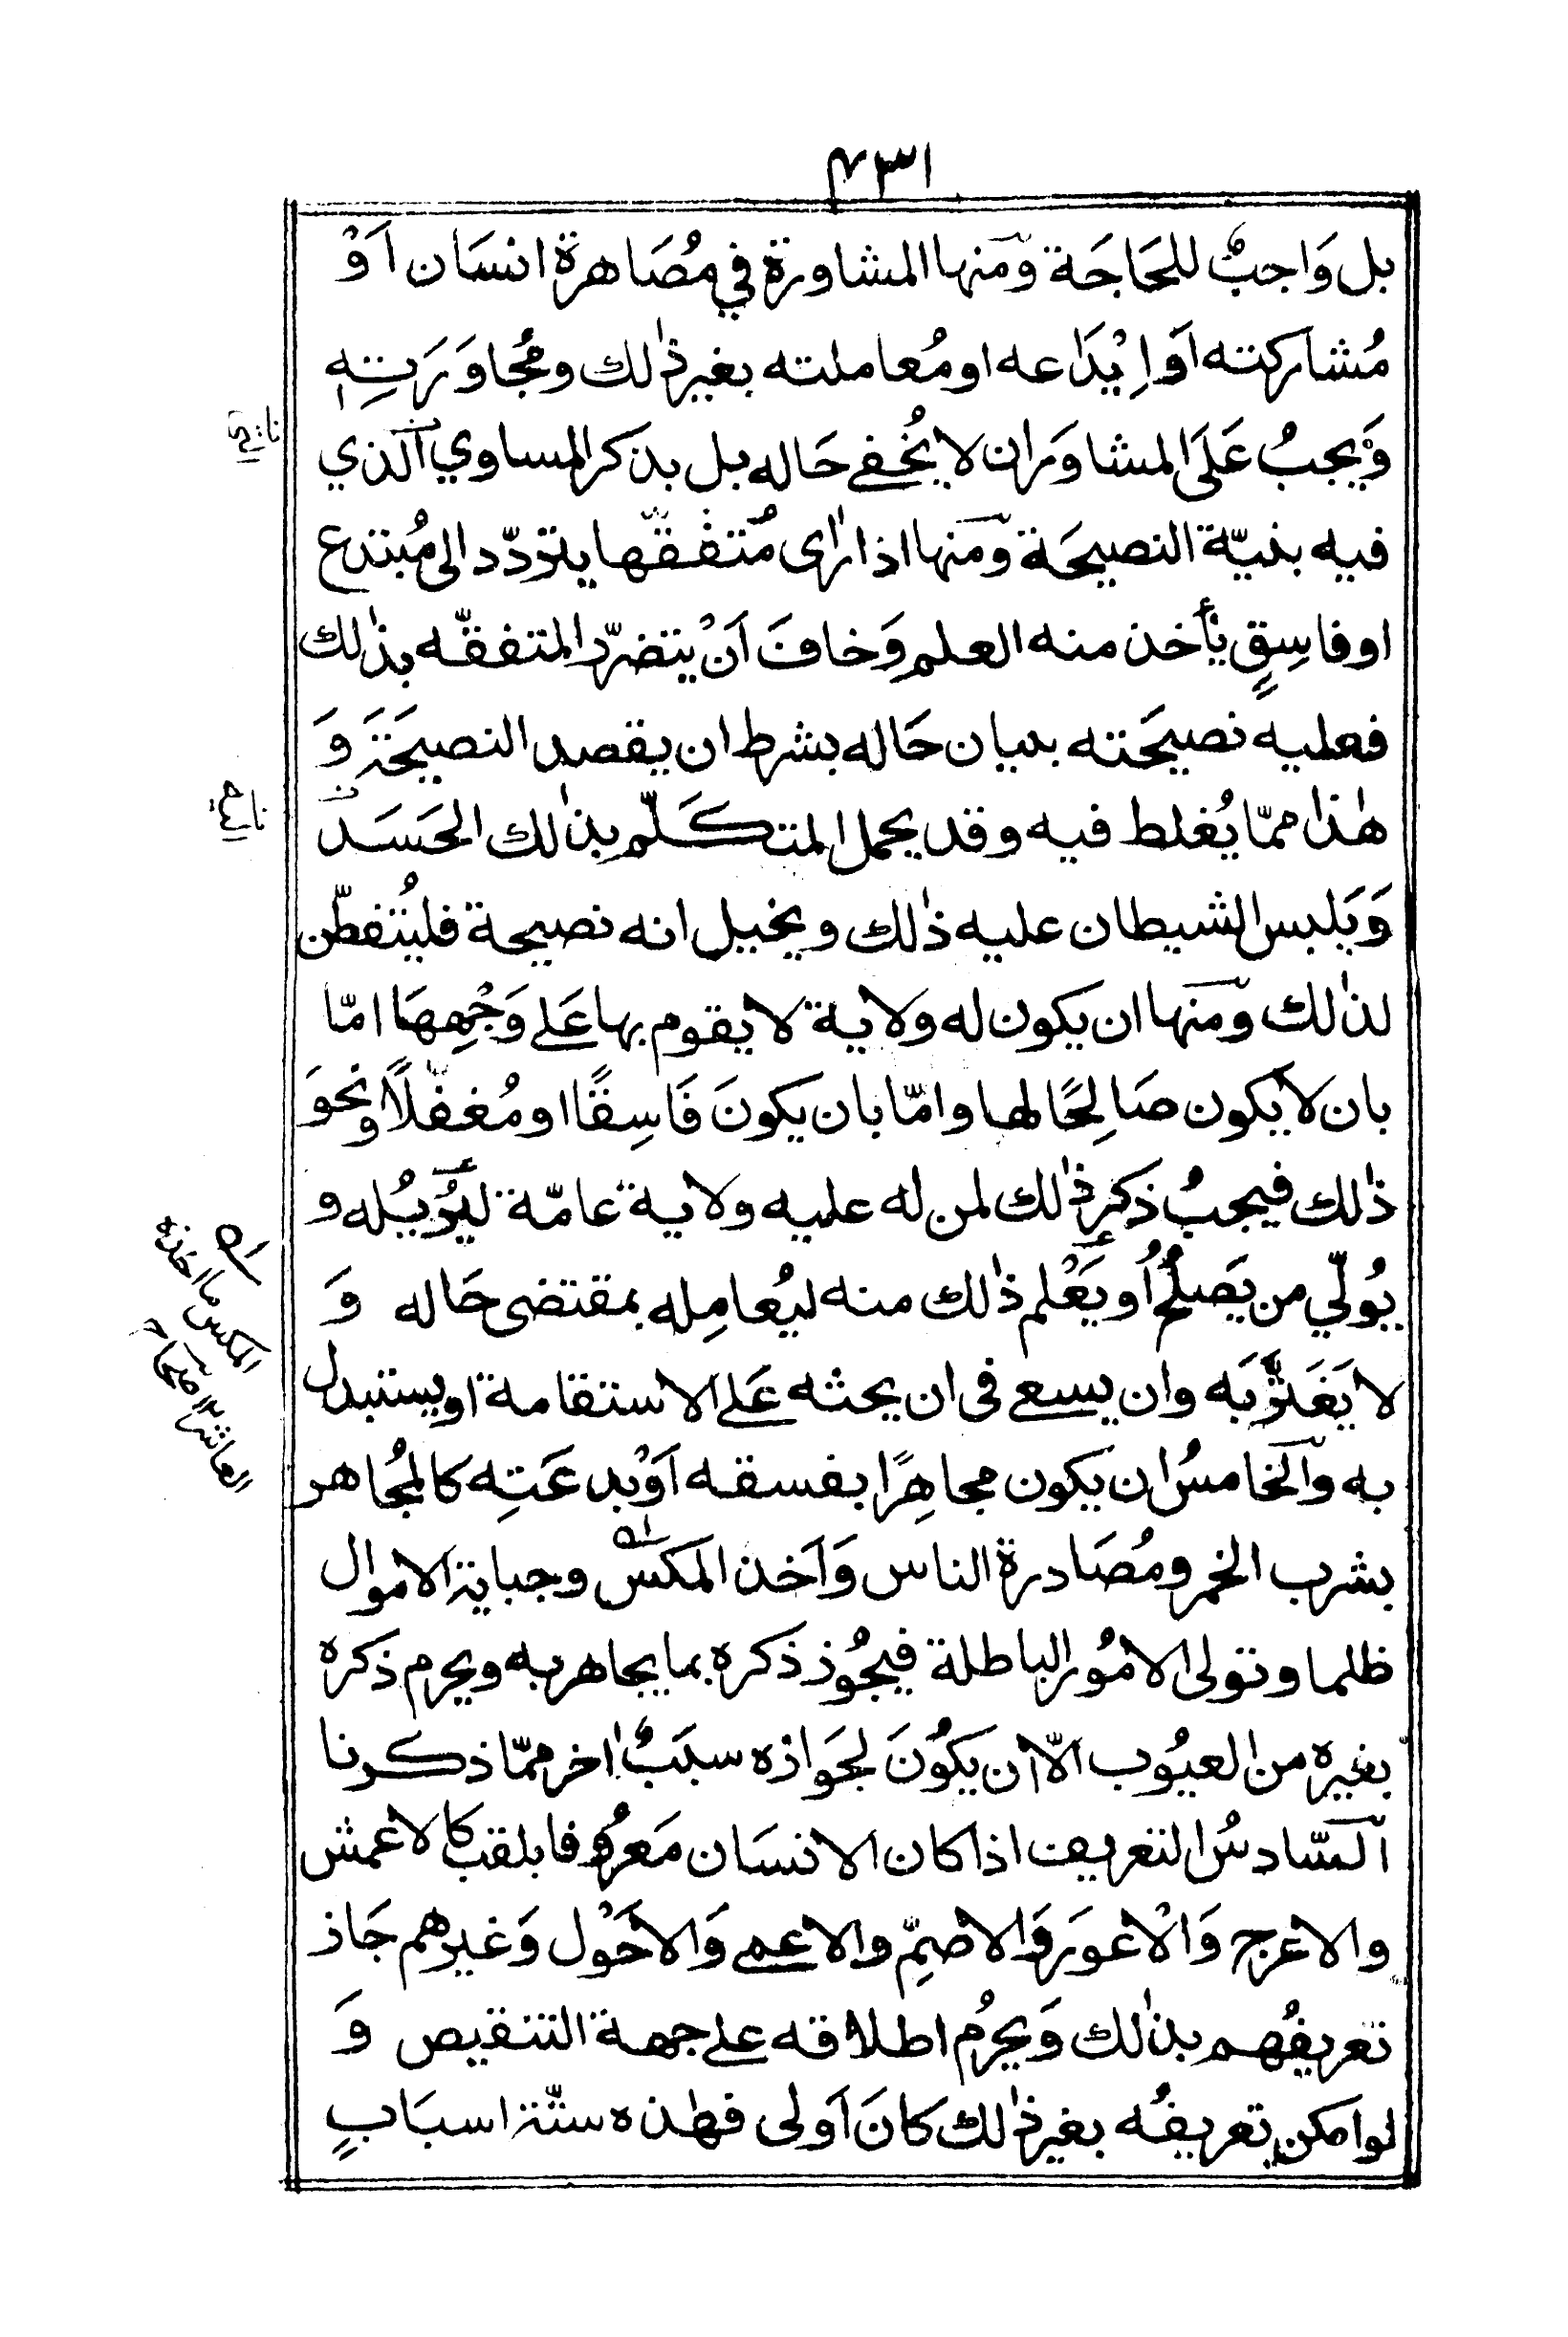 ٤٣١
بل وَاجبٌ للحَاجَة ومنها المشاورة في مُصَاهرة انسَان اَوْ
مُشاركته اَوْ اِيْدَاعه او مُعاملته بغير ذٰلك ومُجاوَرَتِهٖ
وَيجبُ عَلَى المشاوَر ان لا يُخفي حَاله بل بذكر المساوي الذي
فيه بنيّة النصيحَة ومنها اذا راٰى مُتفقّها يتردّد الى مُبتدع
او فاسِقٍ يأخذ منه العلم وَخافَ اَنْ يتضرّر المتفقّه بذٰلك
فعليه نصيحَته ببيان حَاله بشرط ان يقصد النصيحَةَ وَ
هٰذا ممّا يُغلط فيه وقد يحمل المتكَلّم بذٰلك الحَسَد
وَيَلبس الشيطان عليه ذٰلك ويخيل انه نصيحة فليُتفطّن
لذٰلك ومنها ان يكون له ولاية لا يقوم بها عَلى وَجْهِهَا امّا
بان لا يكون صَالِحًا لها وامّا بان يكونَ فَاسِقًا او مُغفّلًا ونحوَ
ذٰلك فيجبُ ذكر ذٰلك لمن له عليه ولاية عامّة ليُزيْله و
يُولّي من يَصلُحُ اَو يَعْلم ذٰلك منه ليُعامِله بمقتضى حَاله وَ
لا يَغَترَّ به وان يسعى فى ان يحثه عَلى الاستقامة او يستبدل
به والخامسُ ان يكون مجاهِرًا بفسقه اَوْ بدعَتِه كالمُجاهر
بشرب الخمر ومُصَادرة الناس وَاَخذ المكس وجباية الاموال
ظلما وتولى الامُور الباطلة فيجُوز ذكره بما يجاهر به ويحرم ذكره
بغيره من العيُوب الّا ان يكُونَ لجَوازه سبَبٌ اٰخر ممّا ذكرنا
السّادسُ التعريف اذا كان الانسَان مَعرُوفا بلقب كالاعمش
والاعرج وَالْاعوَر وَالاصمِّ والاعمى وَالاحَوْل وَغيرهم جَاز
تعريفُهم بذٰلك وَيحرُم اطلاقه على جهة التنقيص وَ
لو امكن تعريفُه بغير ذٰلك كانَ اَولى فهٰذه ستّة اسبَابٍ
المكس ما اخذه
العاشر صحاح